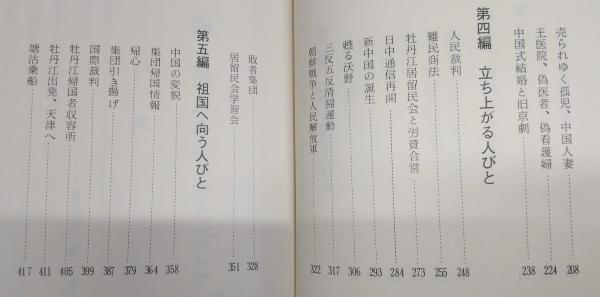 売られゆく孤児、中国人妻 208
王医院、偽医者、偽看護婦 224
中国式結婚と旧京劇 238
第四編　立ち上がる人びと
人民裁判 248
難民商法 255
牡丹江居留民会と労資合営 273
日中通信再開 284
新中国の誕生 293
甦る沃野 306
三反五反清掃運動 317
朝鮮戦争と人民解放軍 322
敗者集団 328
居留民会学習会 351
第五編　祖国へ向う人びと
中国の変貌 358
集団帰国情報 364
帰心 379
集団引き揚げ 387
国際裁判 399
牡丹江帰国者収容所 405
牡丹江出発、天津へ 411
塘沽乗船 417